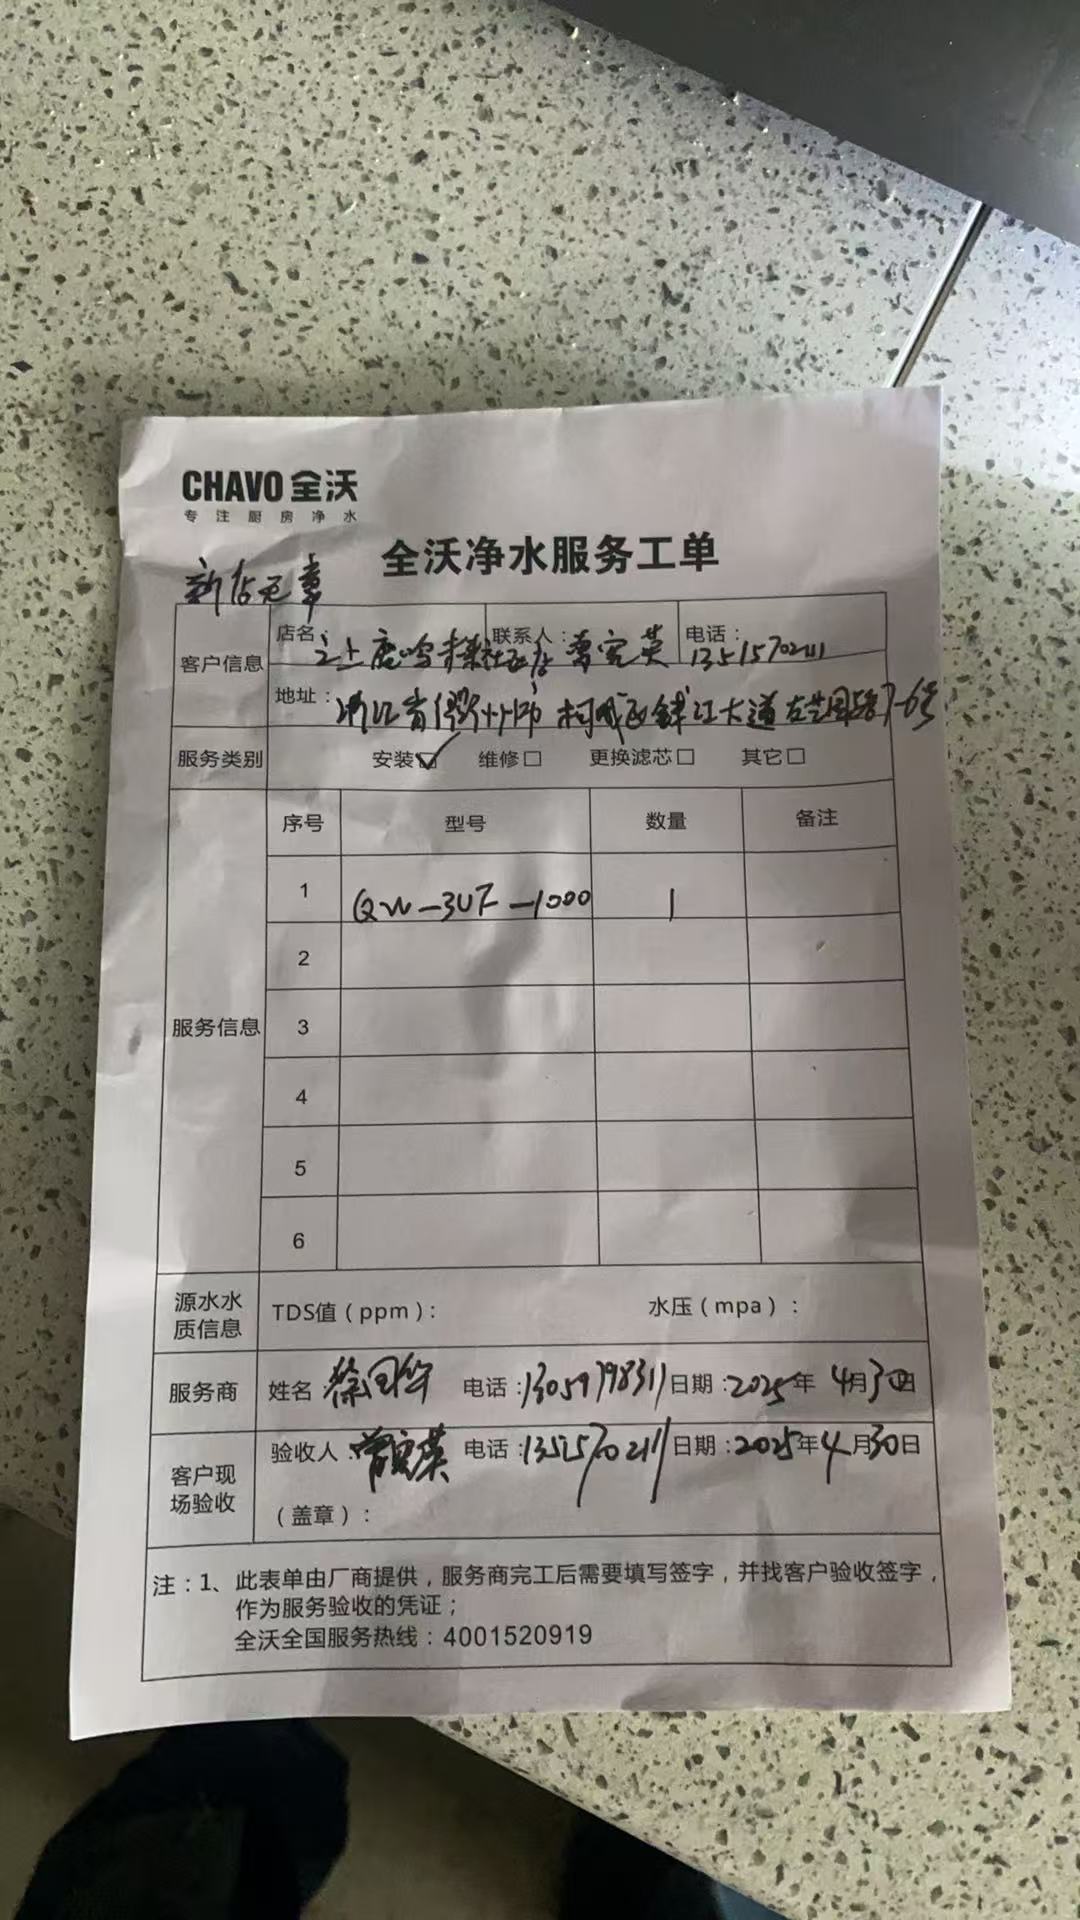 CHAVO 全沃
专注厨房净水
全沃净水服务工单
新店无章
客户信息
店名: 之上鹿鸣 社区店 联系人: 曹宛英 电话: 13515702111
地址: 浙江省衢州市柯城区钱江大道 7-6号
服务类别 安装☑ 维修☐ 更换滤芯☐ 其它☐
服务信息
序号 型号 数量 备注
1 QW-3UF-1000 1
2
3
4
5
6
源水水质信息 TDS值（ppm）: 水压（mpa）:
服务商 姓名 徐国华 电话: 13059798311 日期: 2025年 4月30日
客户现场验收 验收人: 曹宛英 电话: 13515702111 日期: 2025年4月30日
（盖章）:
注: 1、此表单由厂商提供，服务商完工后需要填写签字，并找客户验收签字，
作为服务验收的凭证；
全沃全国服务热线: 4001520919